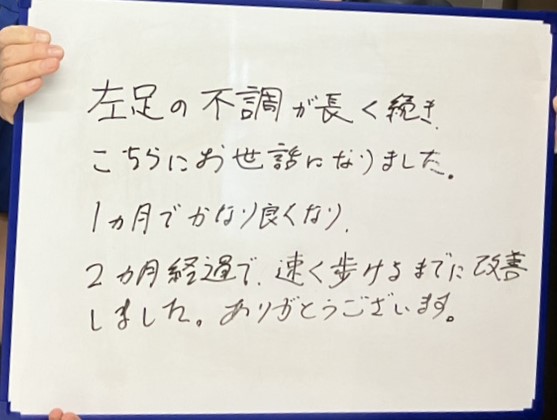 左足の不調が長く続き、
こちらにお世話になりました。
1ヵ月でかなり良くなり、
2ヵ月経過で、速く歩けるまでに改善
しました。ありがとうございます。